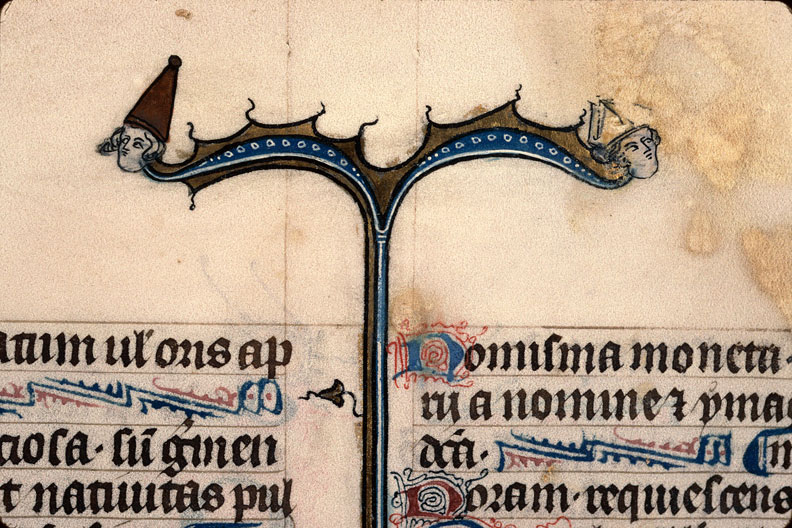 atum ul' oris ap
ciosa · sū g̃men
t natiuitas pul
Nomisma moneta ·
rū a nomine ⁊ yma
dc̄a ·
Noram · requiescens